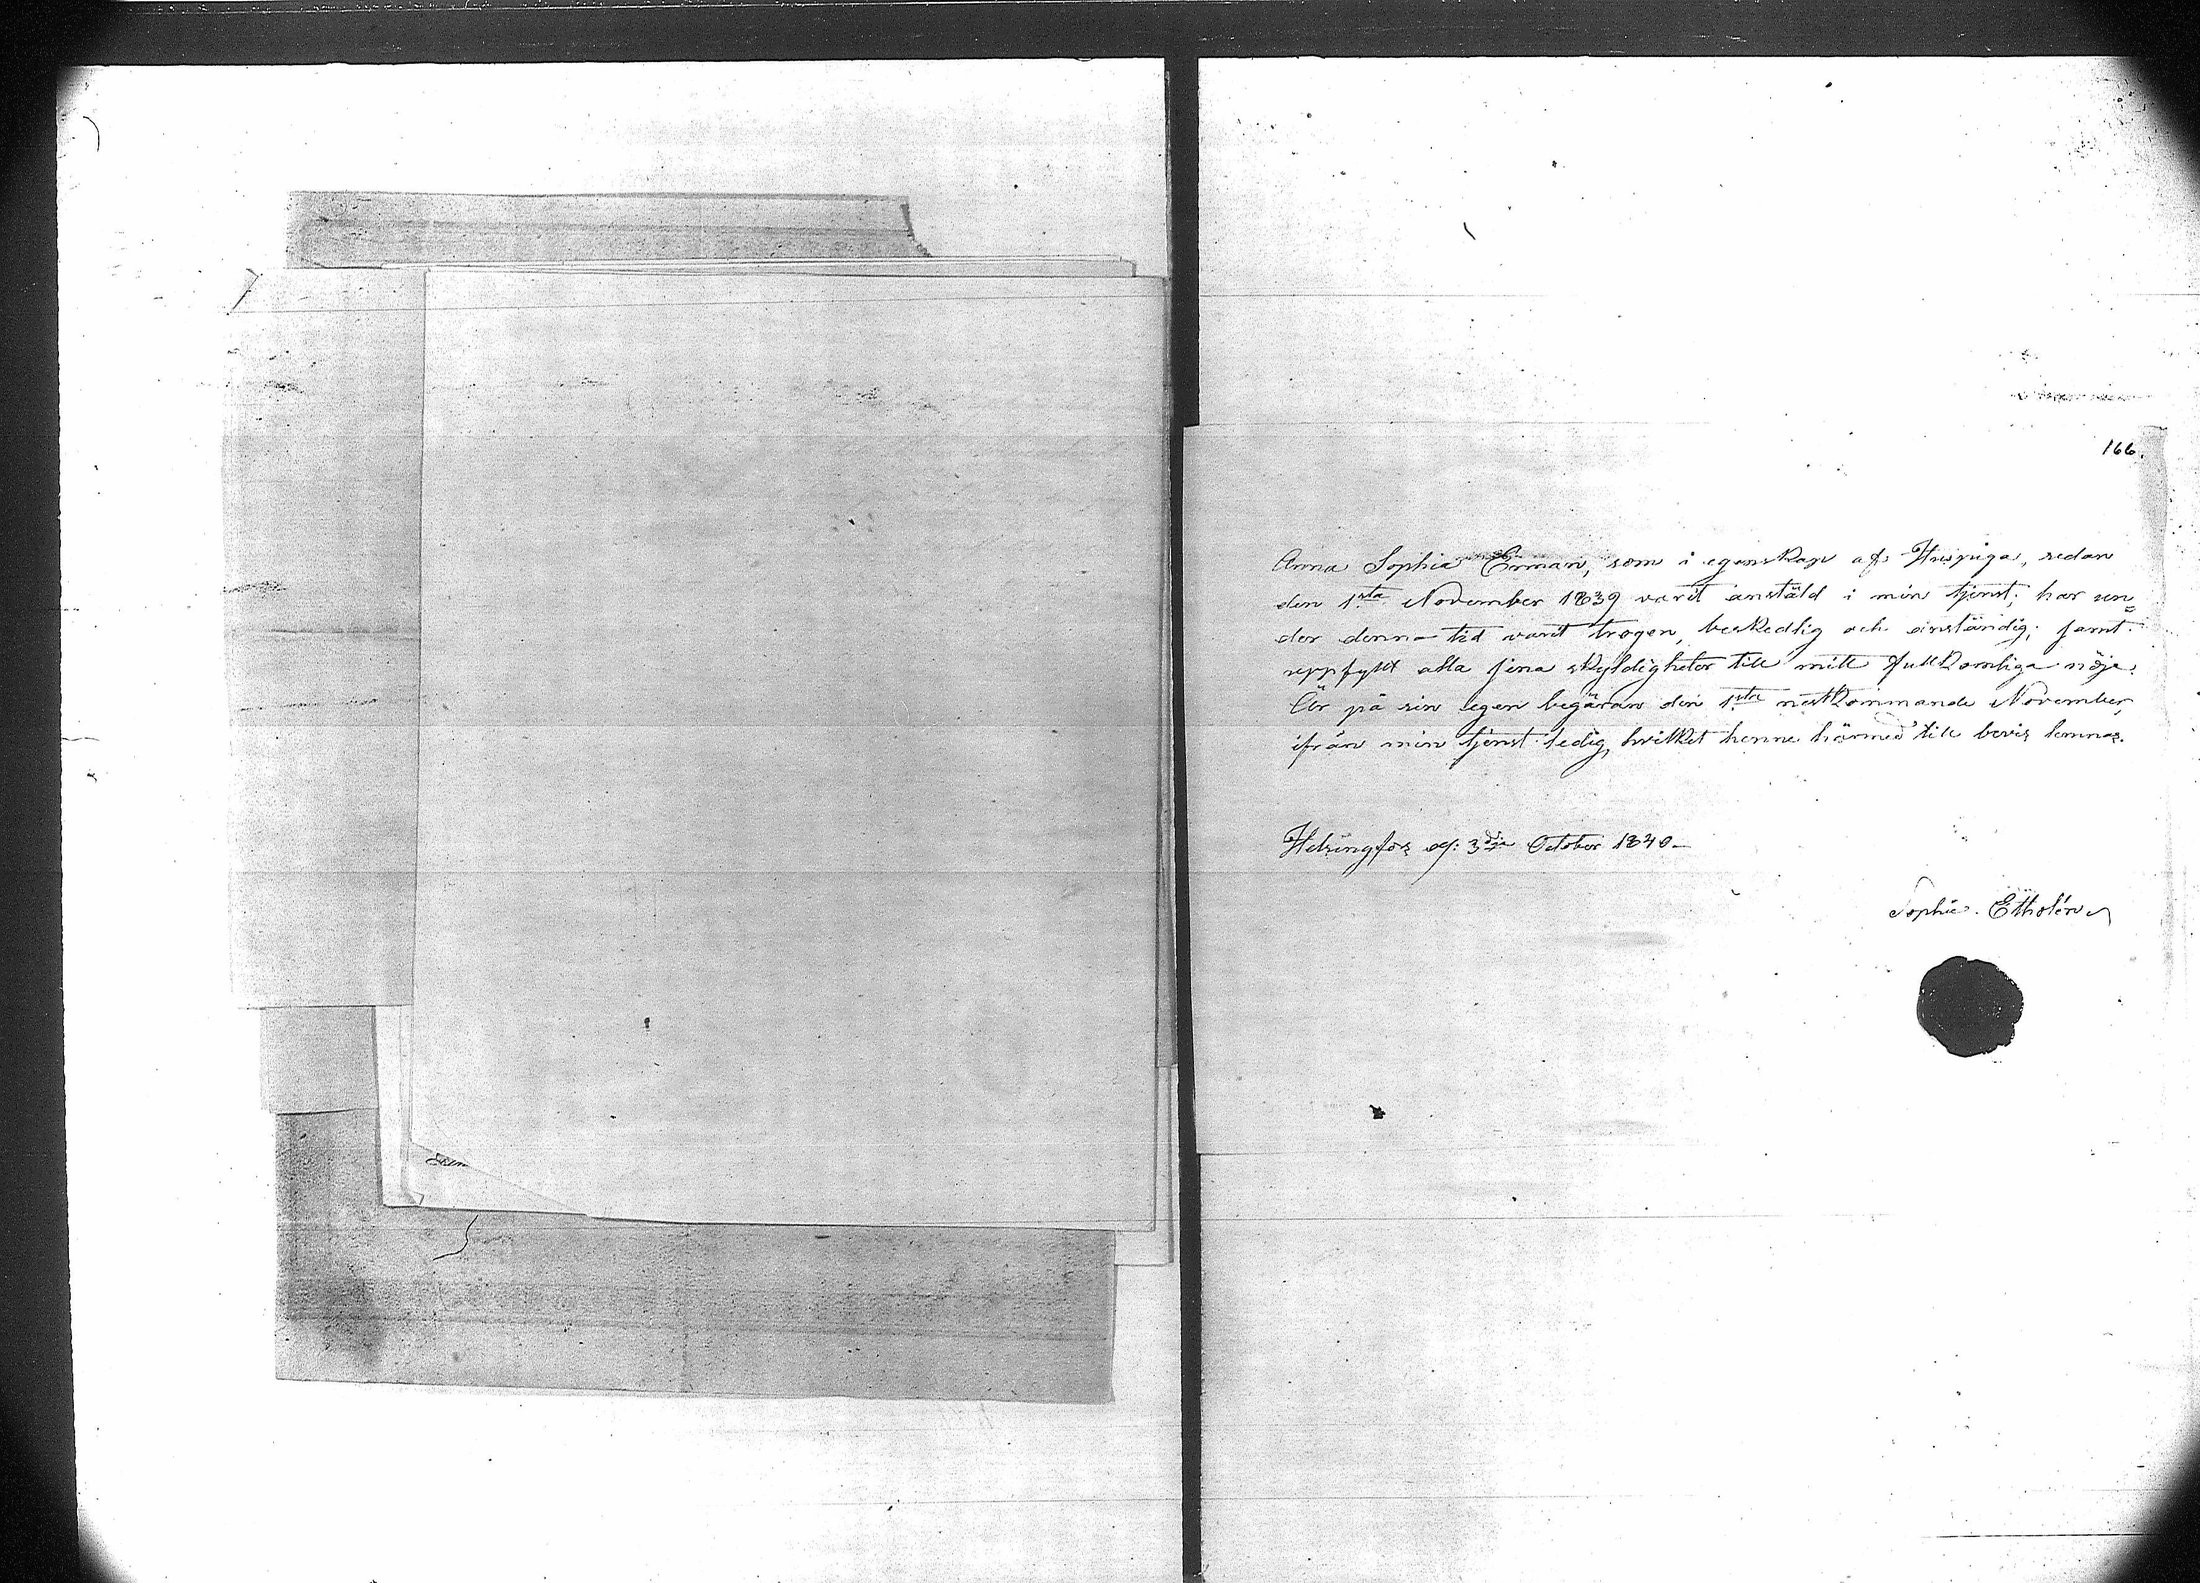 166.
Anna Sophia Erman, som i egenskap af Huspiga, sedan
den 1sta November 1839 varit anstäld i min tjenst; har un=
der denna tid varit trogen, beskedlig och anständig; samt
uppfyllt alla sina skyldigheter till mitt fullkomliga nöje.
Är på sin egen begäran den 1sta nästkommande November,
ifrån min tjenst ledig, hvilket henne härmed till bevis lemnas.
Helsingfors 3dje October 1840.
Sophie Etholén